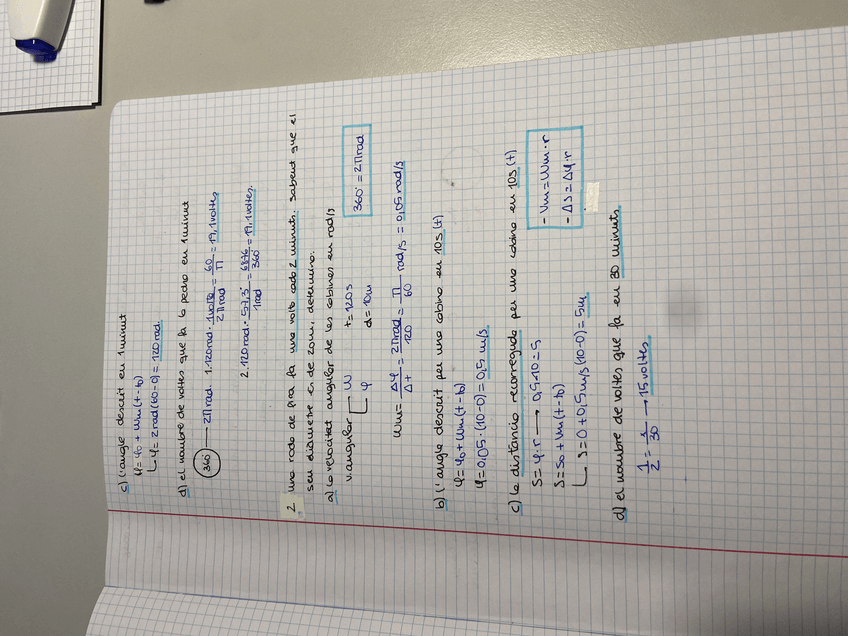 c) l'angle descrit en 1 minut
φ = φ0 + Wm(t - t0)
φ = 2 rad (60-0) = 120 rad.
d) el nombre de voltes que fa la pedra en 1 minut
360° — 2Π rad 1.120rad · 1 volta / 2Π rad = 60 / Π = 19,1 voltes
2.120 rad · 57,3° / 1 rad = 6876 / 360 = 19,1 voltes.
2 Una roda de fira fa una volta cada 2 minuts, sabent que el
seu diàmetre és de 20m, determina:
a) la velocitat angular de les cabines en rad/s
v.angular → W t = 120 s
φ d = 10m
360° = 2Π rad
Wm = Δφ / Δt = 2Π rad / 120 = Π / 60 rad/s = 0,05 rad/s
b) l'angle descrit per una cabina en 10s (t)
φ = φ0 + Wm(t - t0)
φ = 0,05 · (10-0) = 0,5 m/s
c) la distancia recorreguda per una cabina en 10s (t)
S = φ · r → 0,5·10 = 5
S = S0 + Vm(t - t0)
S = 0 + 0,5 m/s (10-0) = 5m
- Vm = Wm · r
- ΔS = Δφ · r
d) el nombre de voltes que fa en 30 minuts
1 / 2 = x / 30 → 15 voltes.